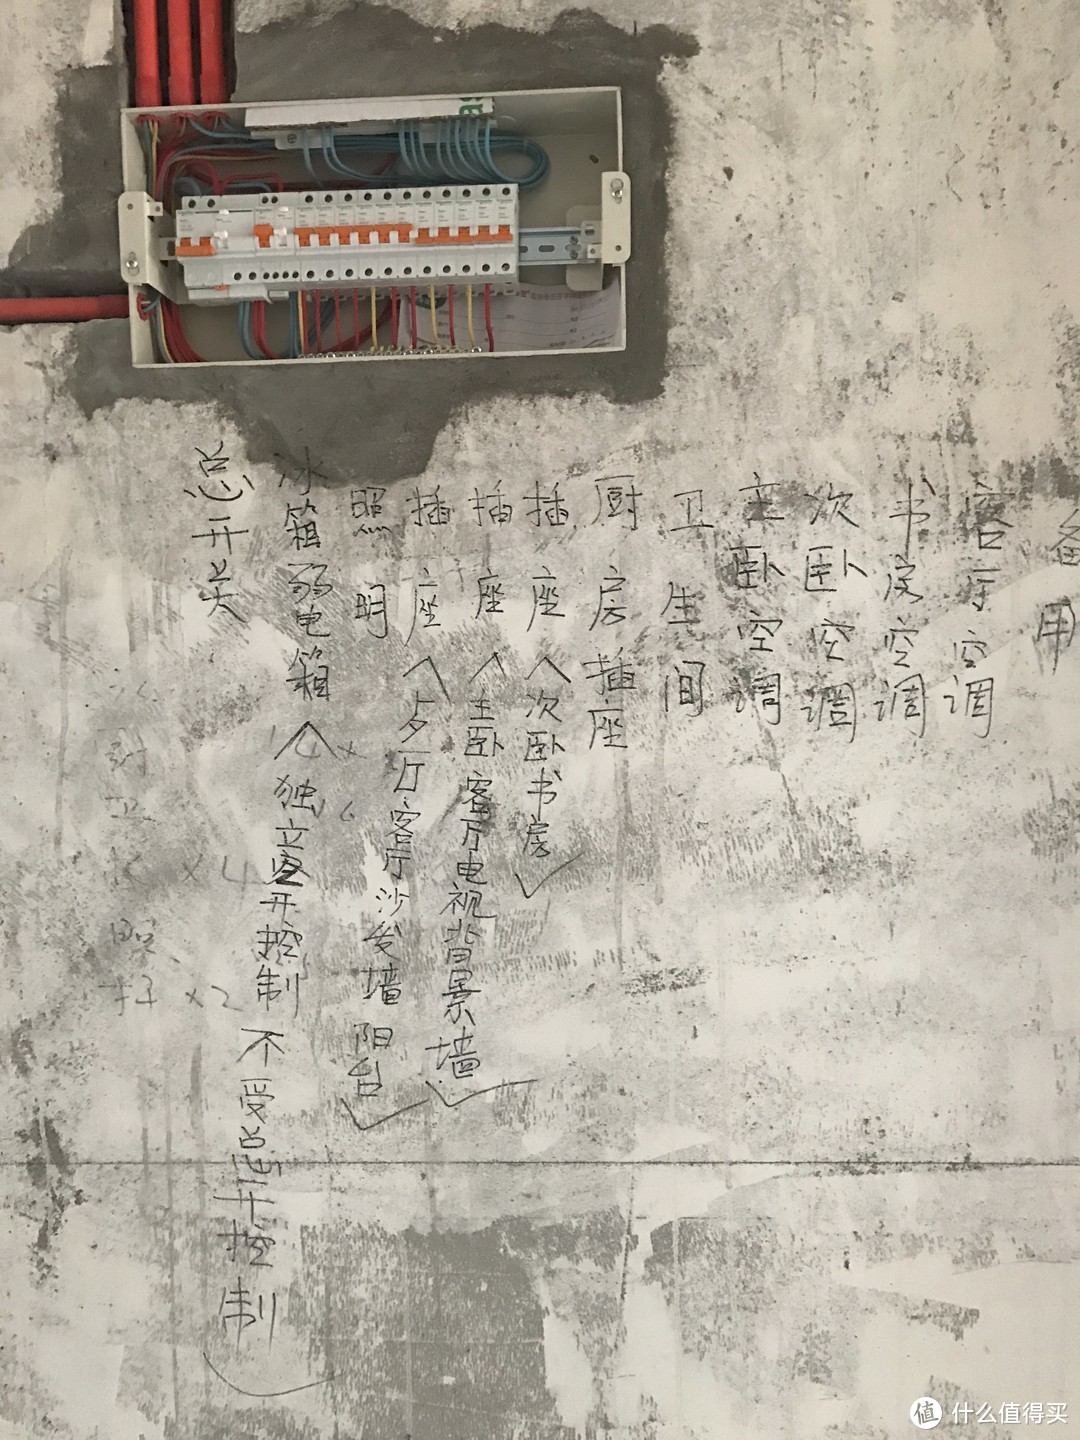 总开关
冰箱弱电箱（独立空开控制不受总开控制）
照明
插座（歺厅客厅沙发墙阳台）
插座（主卧客厅电视背景墙）
插座（次卧书房）
厨房插座
卫生间
主卧空调
次卧空调
书房空调
客厅空调
备用
×4
×2
值 什么值得买